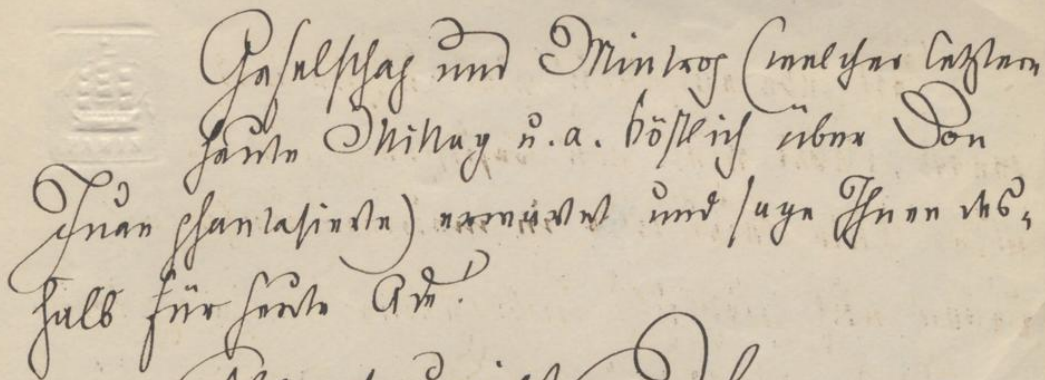 Geselschap und Mintrop (welcher letztere
heute Mittag u. a. köstlich über Don
Juan phantasierte) erwartet und sage Ihnen des-
halb für heute Ade!